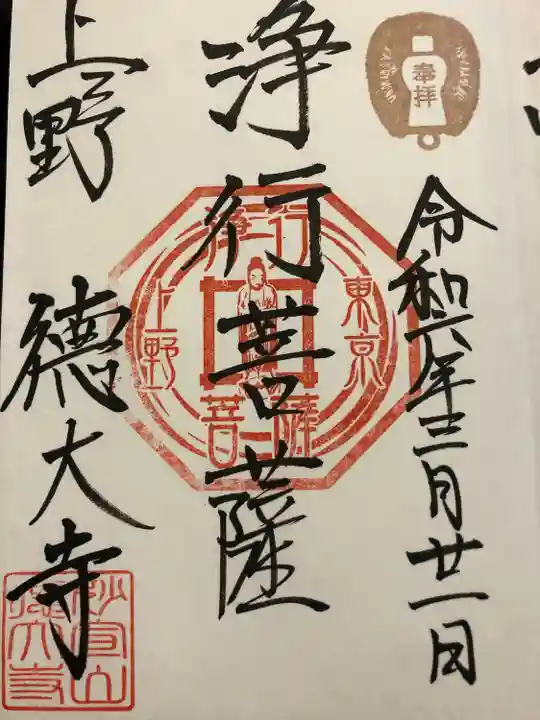 奉拝
令和六年三月廿一日
浄行菩薩
浄行
東京
上野
菩薩
上野 德大寺
妙宣山
德大寺